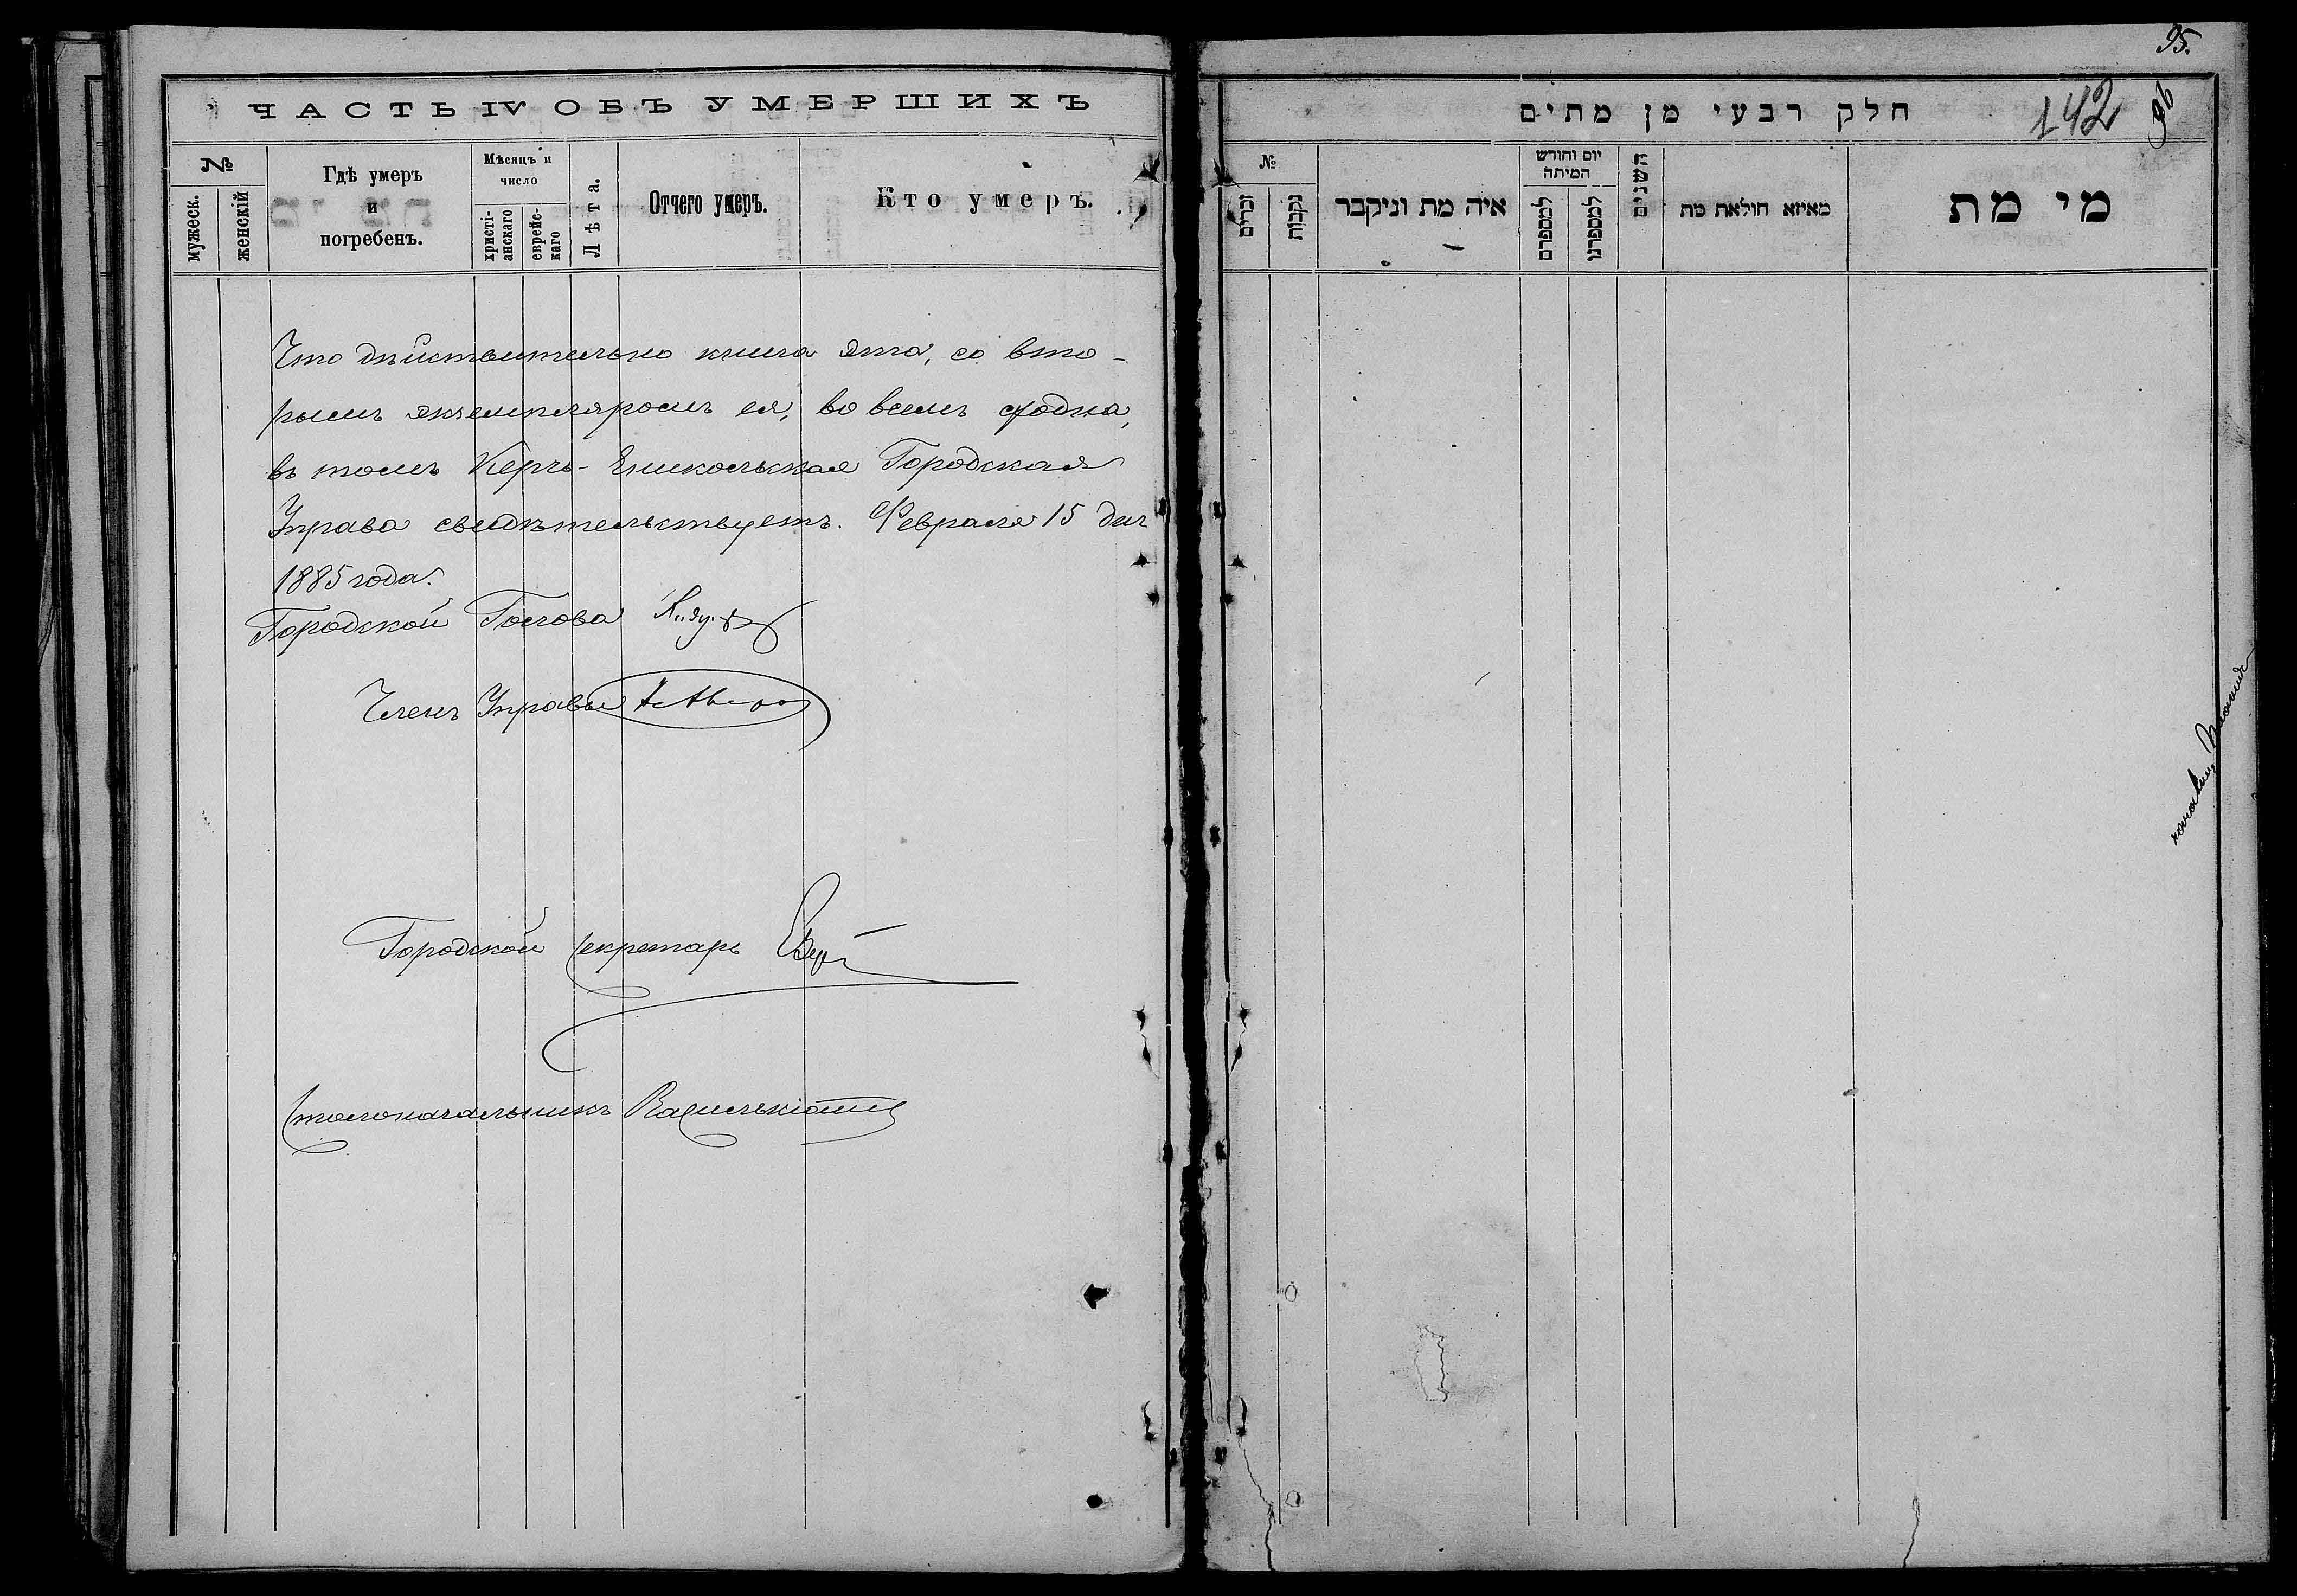 ЧАСТЬ IV ОБЪ УМЕРШИХЪ
№
мужеск.
женскій
Гдѣ умеръ
и
погребенъ.
Мѣсяцъ и
число
христі-
анскаго
еврейс-
каго
Лѣта.
Отчего умеръ.
Кто умеръ.
Что дѣйствительно книга эта, со вто-
рымъ экземпляромъ ея, во всемъ сходна,
въ томъ Керчь-Еникольская Городская
Управа свидѣтельствуетъ. Февраля 15 дня
1885 года.
Городской Голова
Членъ Управы
Городской Секретарь
Столоначальникъ
95.
חלק רבעי מן מתים
142
96
№
זכרים
נקבות
איה מת וניקבר
יום וחודש
המיתה
למספרם
למספרנו
השנים
מאיזא חולאת מת
מי מת